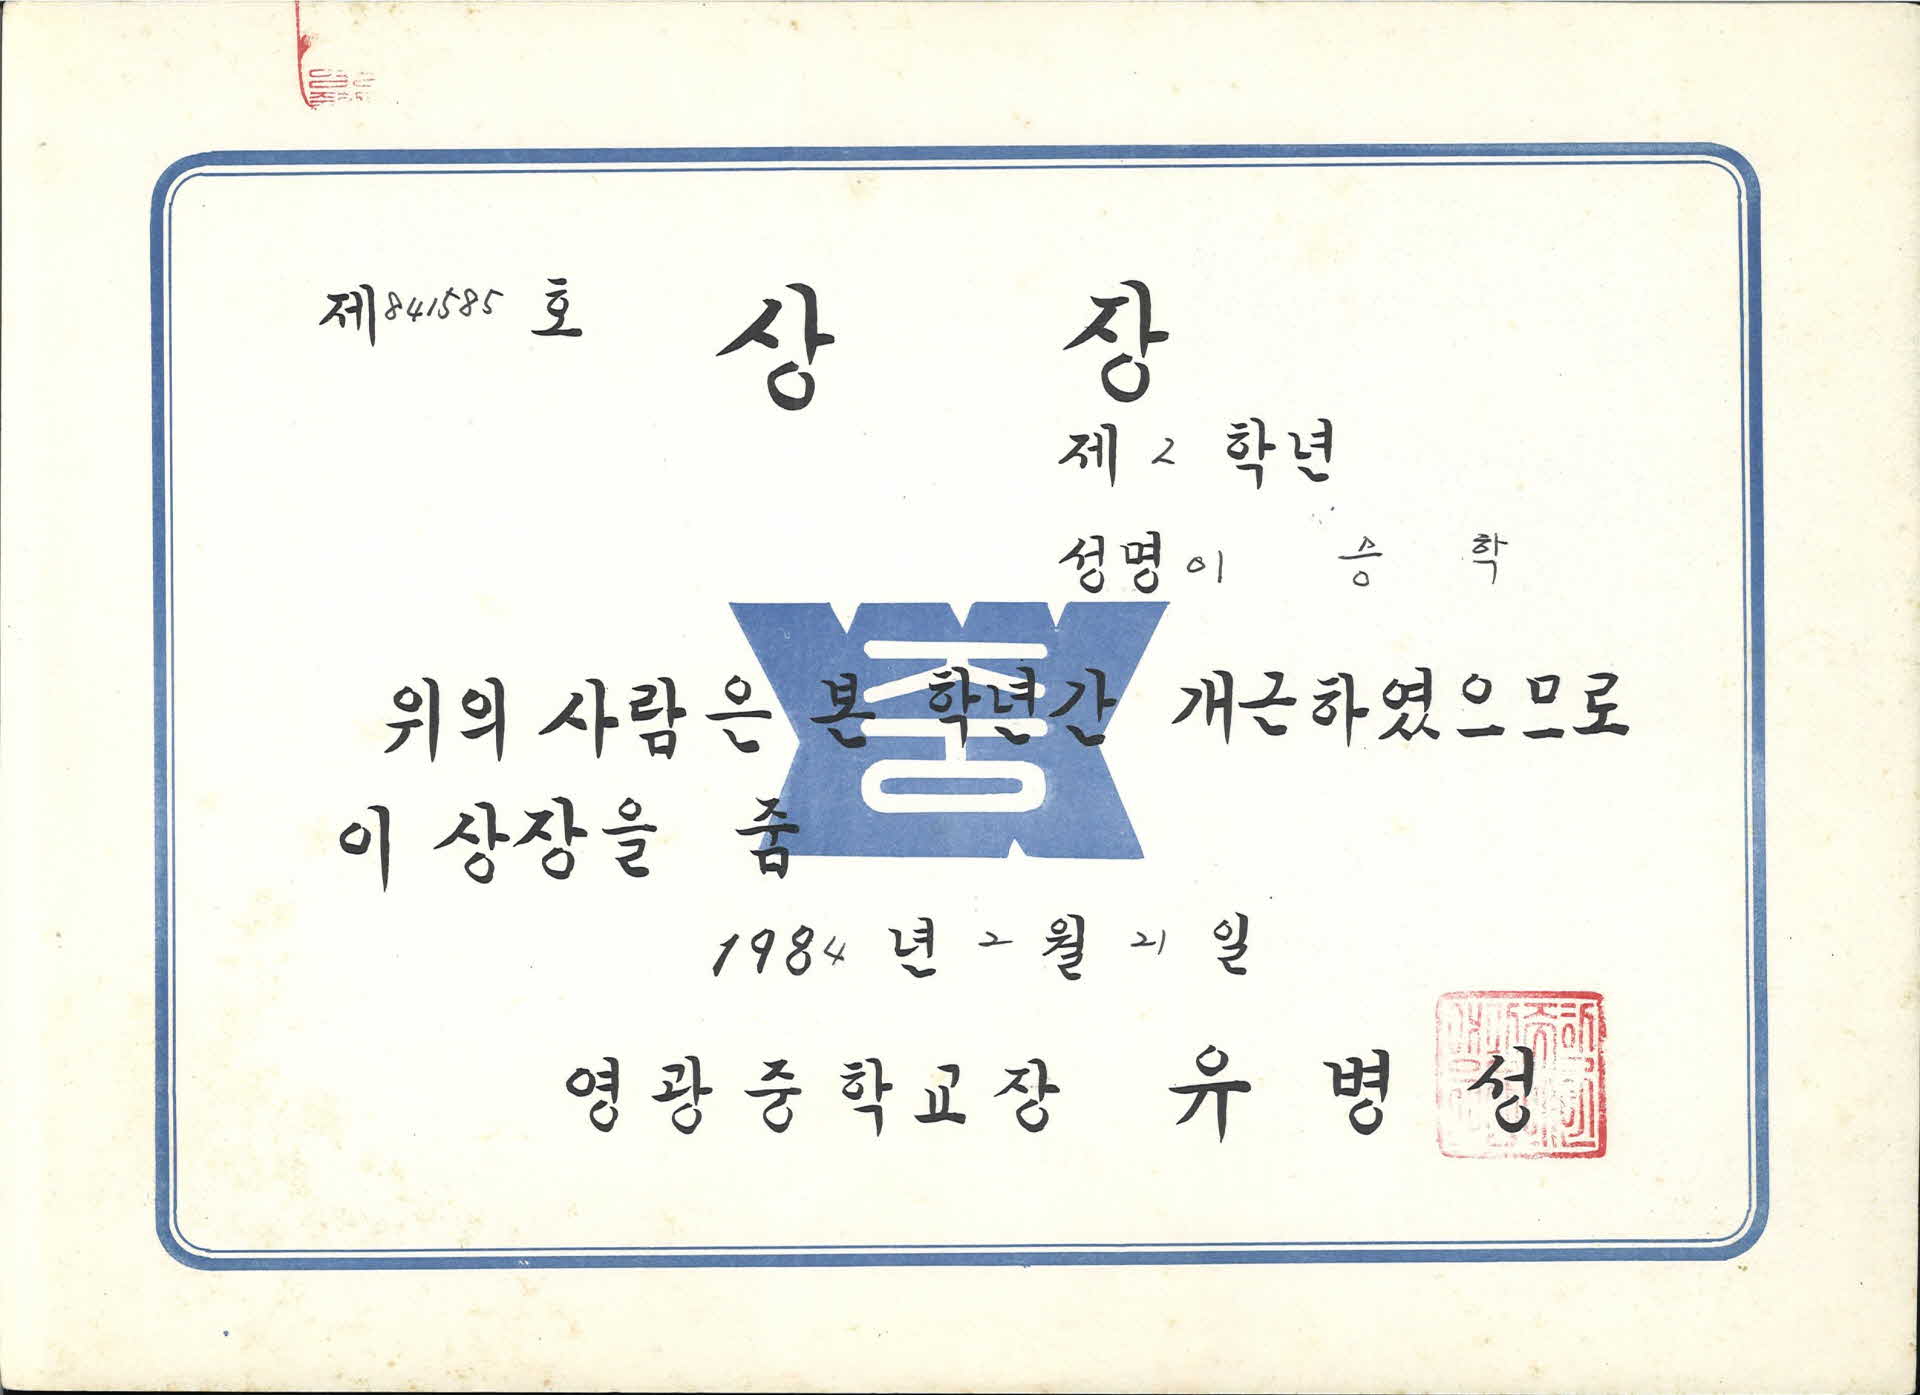 제841585 호
상 장
제 2 학년
성명 이 승 학
중
위의 사람은 본 학년간 개근하였으므로
이 상장을 줌
1984 년 2 월 21 일
영광중학교장 유 병 성